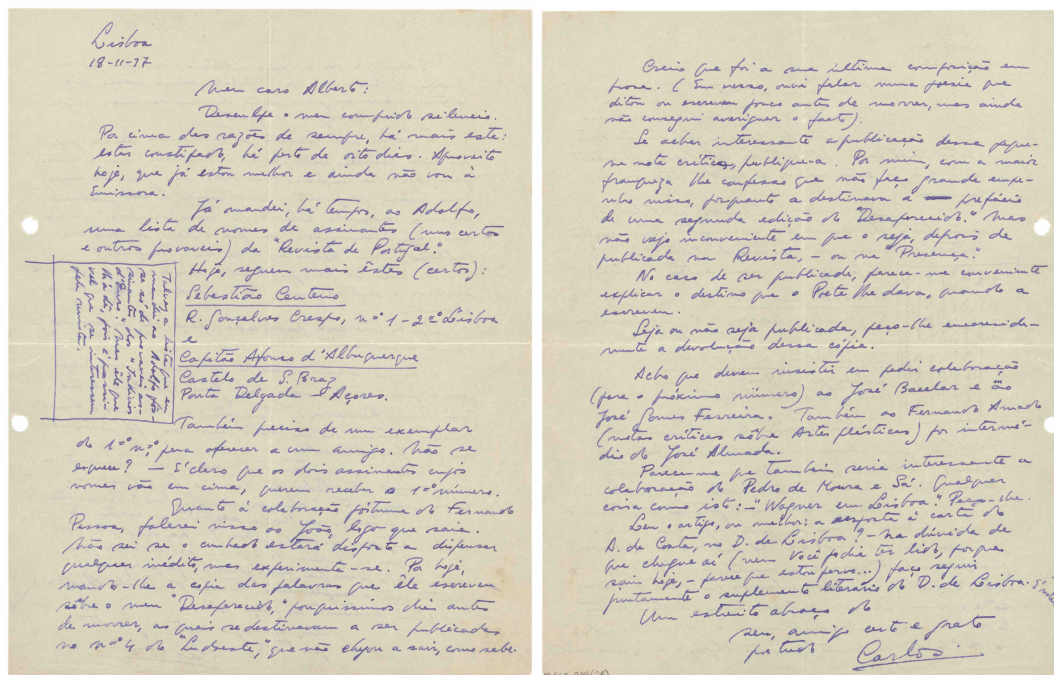 Lisboa
18-11-37
Meu caro Alberto:
Desculpe o meu comprido silencio.
Por cima das razões de sempre, há mais esta:
estar constipado, há perto de oito dias. Aproveito
hoje, que já estou melhor e ainda não vou à
Emissora.
Já mandei, há tempos, ao Adolfo,
uma lista de nomes de assinantes (uns certos
e outros provaveis) da "Revista de Portugal".
Hoje, seguem mais êstes (certos):
Sebastião Centeno
R. Gonçalves Crespo, nº 1-2º Lisboa
e
Capitão Afonso d'Albuquerque
Castelo de S. Braz
Ponta Delgada Açores.
Talvez a lista que eu
mandei ao Adolfo fos-
se só de provaveis as-
sinantes dos "Indícios
d'Ouro". Mas êle que
lha dê, pois é possi-
vel que se interessem
pela revista.
Também preciso de um exemplar
do 1º nº, para oferecer a um amigo. Não se
esquece? — E' claro que os dois assinantes cujos
nomes vão em cima, querem receber o 1º número.
Quanto à colaboração póstuma do Fernando
Pessoa, falarei nisso ao João, logo que saia.
Não sei se o cunhado estará disposto a dispensar
qualquer inédito, mas experimente-se. Por hoje,
mando-lhe a copia das palavras que êle escreveu
sôbre o meu "Desaparecido", pouquissimos dias antes
de morrer, as quais se destinavam a ser publicadas
no nº 4 do "Sudoeste", que não chegou a sair, como sabe.
Creio que foi a sua última composição em
prosa. (Em verso, ouvi falar numa poesia que
ditou ou escreveu pouco antes de morrer, mas ainda
não consegui averiguar o facto).
Se achar interessante a publicação dessa peque-
na nota critica, publique-a. Por mim, com a maior
franqueza lhe confesso que não faço grande empe-
nho nisso, porquanto a destinava a prefácio
de uma segunda edição do "Desaparecido". Mas
não vejo inconveniente em que o seja, depois de
publicada na Revista, - ou na "Presença".
No caso de ser publicada, parece-me conveniente
explicar o destino que o Poeta lhe dava, quando a
escreveu.
Seja ou não seja publicada, peço-lhe encarecida-
mente a devolução dessa cópia.
Acho que devem insistir em pedir colaboração
(para o próximo número) ao José Bacelar e ao
José Gomes Ferreira. Também ao Fernando Amado
(notas criticas sôbre Artes plásticas) por intermé-
dio do José Almada.
Parece-me que também seria interessante a
colaboração do Pedro de Moura e Sá. Qualquer
coisa como isto: - "Wagner em Lisboa". Peça-lhe.
Leu o artigo, ou melhor: a resposta à carta do
A. da Costa, no D. de Lisboa? - Na dúvida de
que chegue aí (nem Você podia ter lido, porque
saiu hoje, - parece que estou parvo...) faço seguir
juntamente o suplemento literário do D. de Lisboa.
Um estreito abraço do
seu, amigo certo e grato
por tudo
Carlos